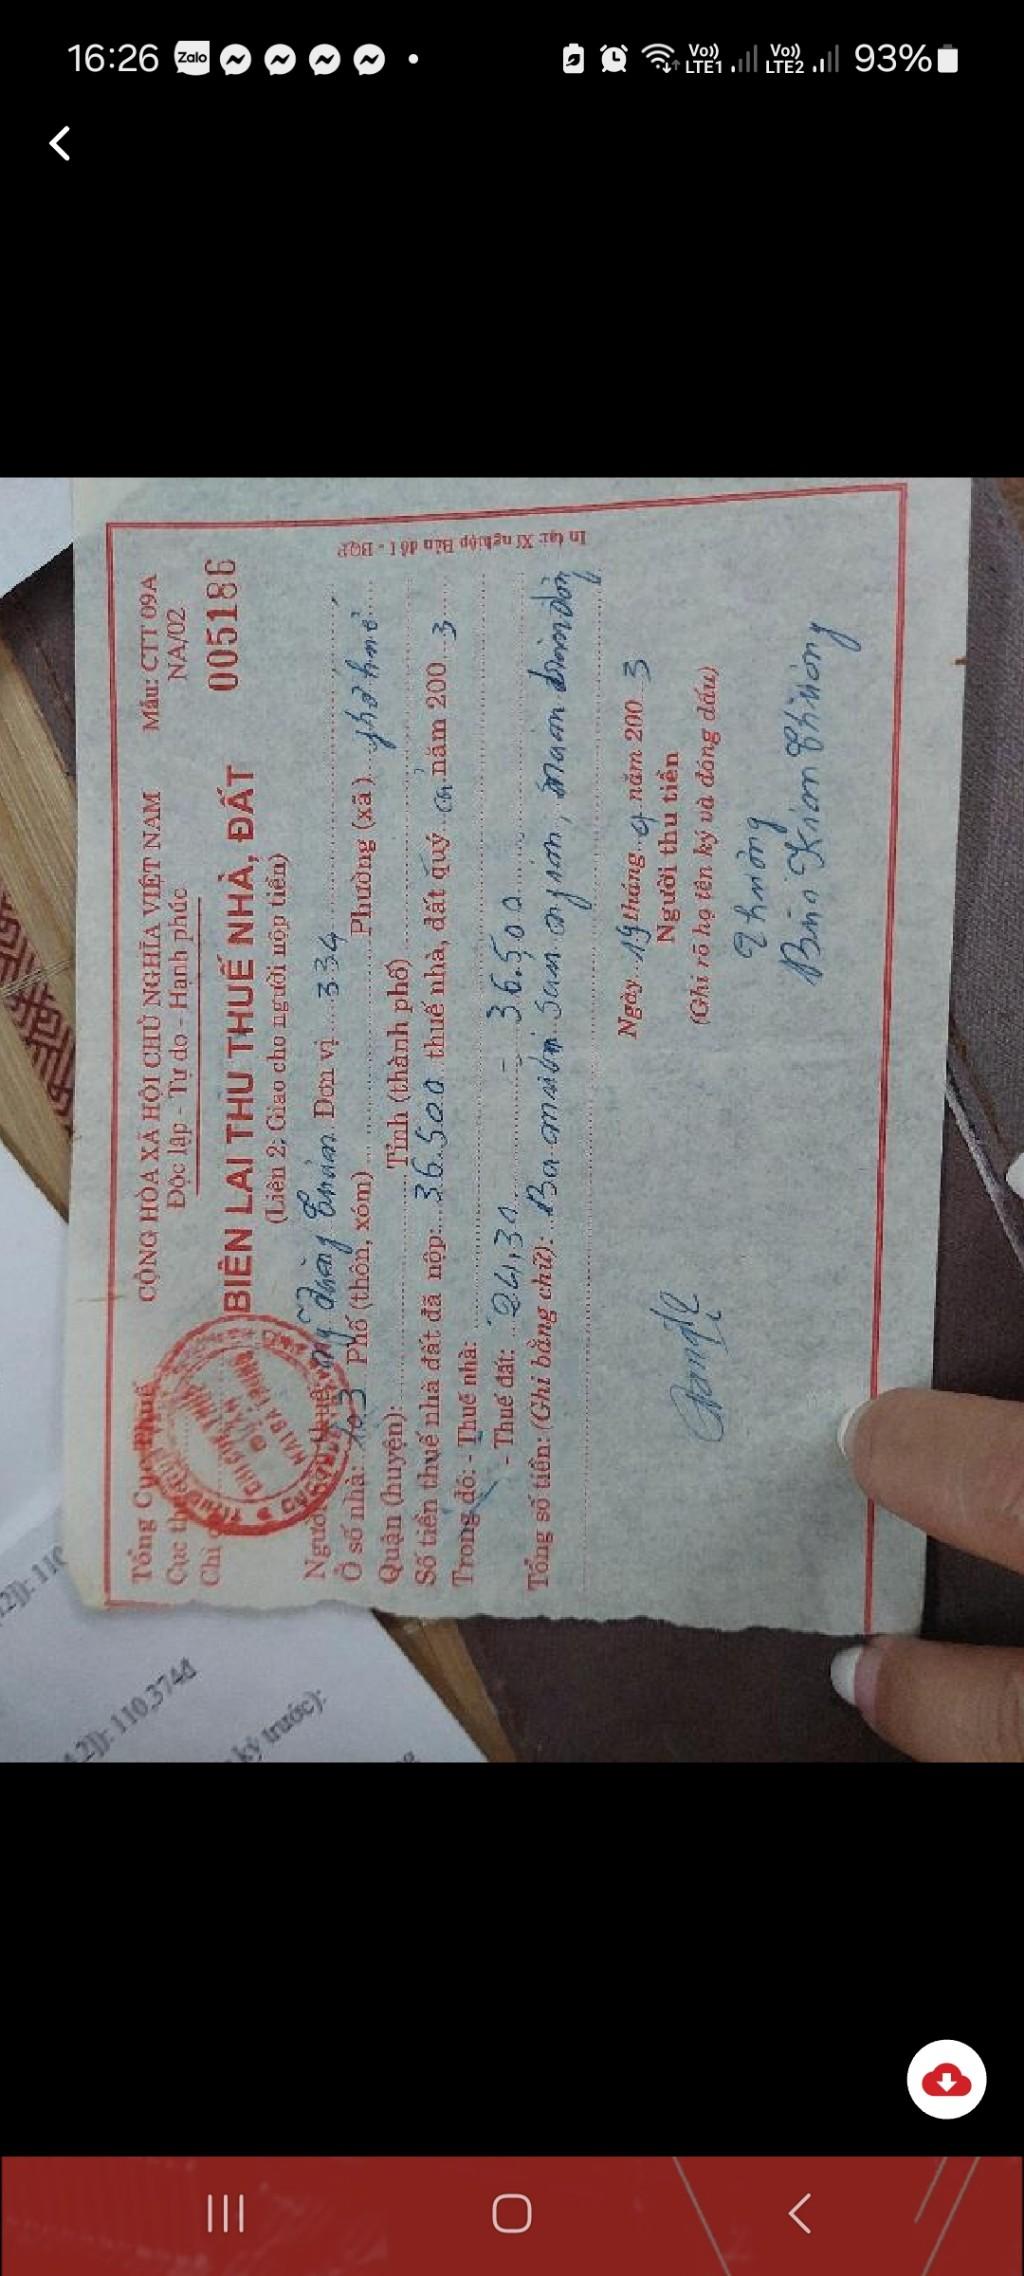 16:26 Zalo Vo)) LTE1 Vo)) LTE2 93%
Tổng Cục Thuế
CỘNG HÒA XÃ HỘI CHỦ NGHĨA VIỆT NAM
Mẫu: CTT 09A
Cục th
Độc lập - Tự do - Hạnh phúc
NA/02
Chi c
BIÊN LAI THU THUẾ NHÀ, ĐẤT
005186
(Liên 2: Giao cho người nộp tiền)
CHI CỤC THUẾ
QUẬN
HAI BÀ TRƯNG
Đơn vị 334
Ở số nhà: 103 Phố (thôn, xóm) Phường (xã)
Quận (huyện): Tỉnh (thành phố)
Số tiền thuế nhà đất đã nộp: 36.500 thuế nhà, đất quý cả năm 2003
Trong đó: - Thuế nhà:
- Thuế đất: 24,30 - 36.500
Tổng số tiền: (Ghi bằng chữ): Ba mươi sáu nghìn, năm trăm đồng
Ngày 19 tháng 9 năm 2003
Người thu tiền
(Ghi rõ họ tên ký và đóng dấu)
In tại: Xí nghiệp Bản đồ 1 - BQP
2]): 110
A.2]): 110,374đ
kỳ trước):